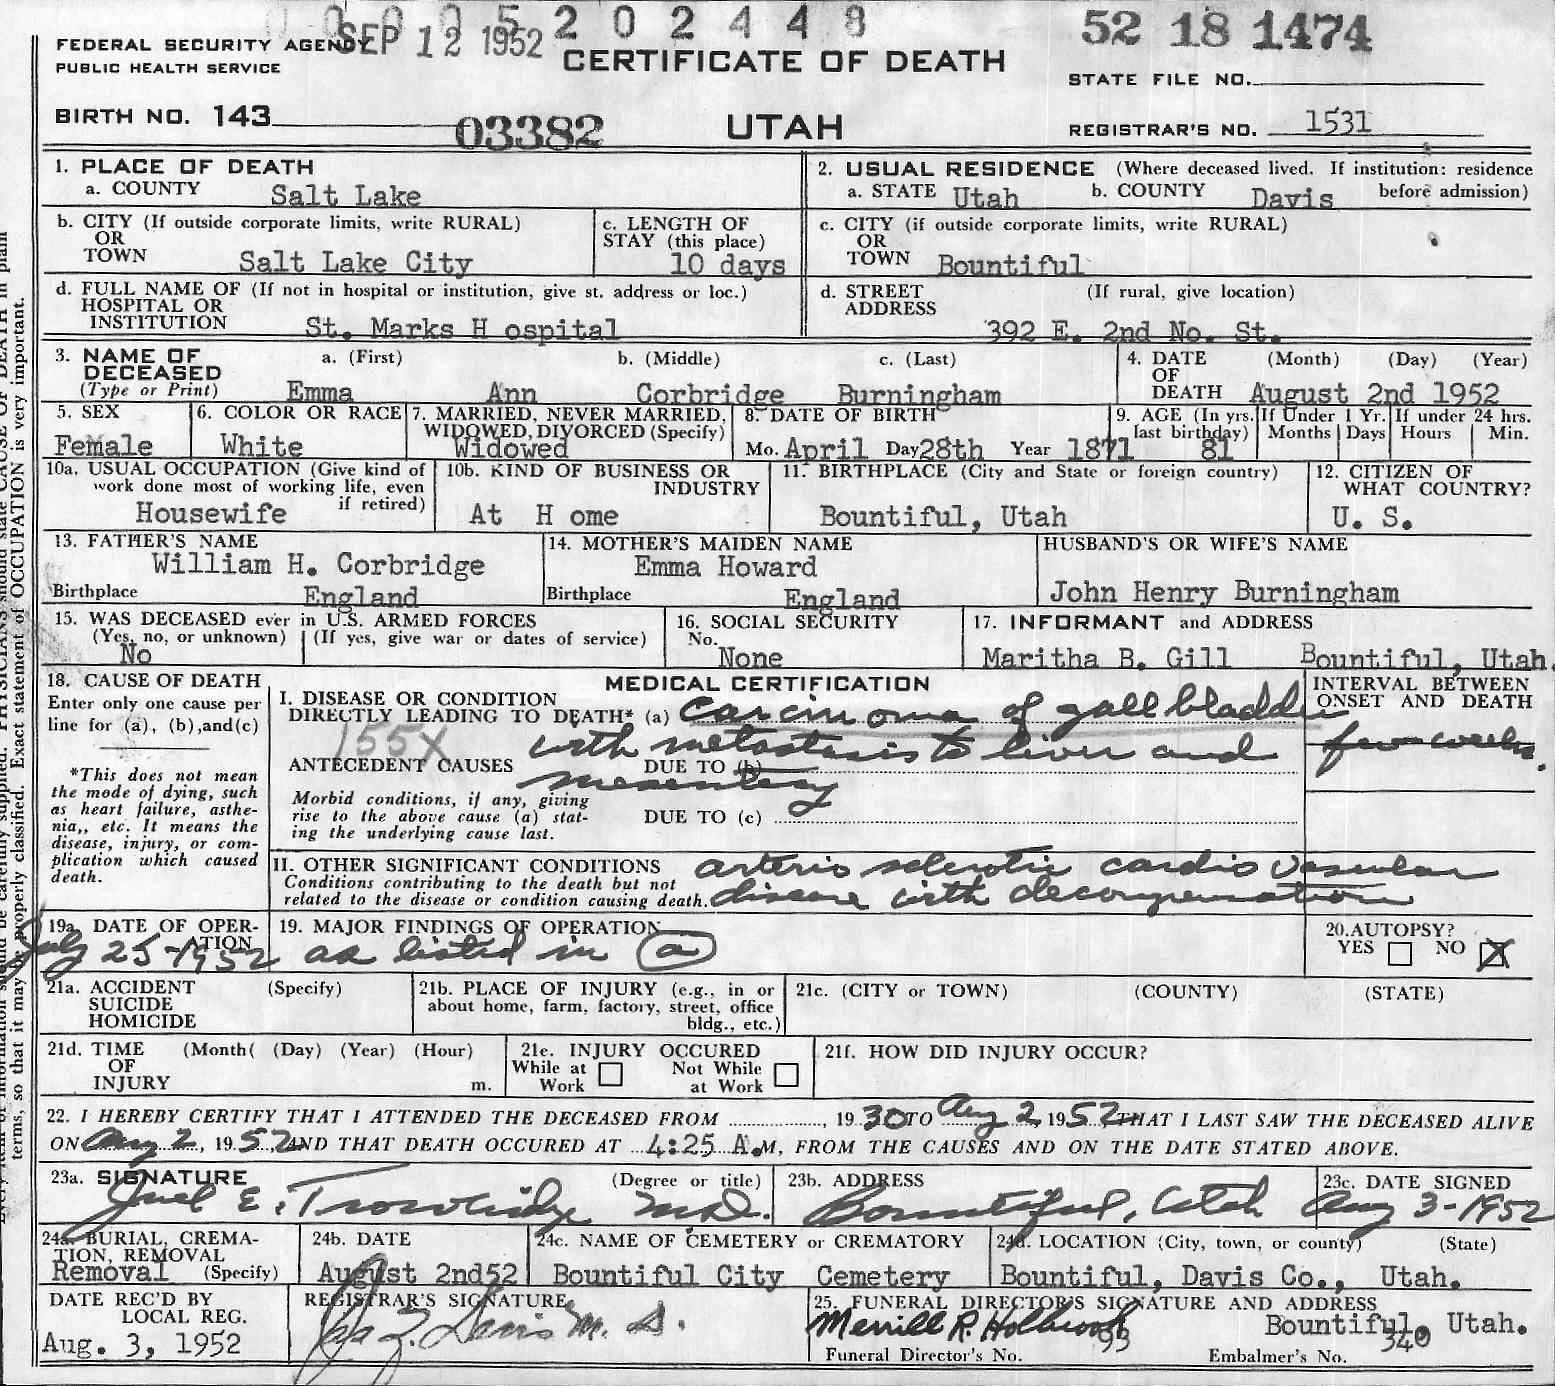 0 0 0 0 5 2 0 2 4 4 8
SEP 12 1952
52 18 1474
FEDERAL SECURITY AGENCY
PUBLIC HEALTH SERVICE
CERTIFICATE OF DEATH
STATE FILE NO.
BIRTH NO. 143
03382
UTAH
REGISTRAR'S NO. 1531
1. PLACE OF DEATH
a. COUNTY Salt Lake
2. USUAL RESIDENCE (Where deceased lived. If institution: residence
a. STATE Utah b. COUNTY Davis before admission)
b. CITY (If outside corporate limits, write RURAL)
OR
TOWN Salt Lake City
c. LENGTH OF
STAY (this place)
10 days
c. CITY (if outside corporate limits, write RURAL)
OR
TOWN Bountiful
d. FULL NAME OF (If not in hospital or institution, give st. address or loc.)
HOSPITAL OR
INSTITUTION St. Marks H ospital
d. STREET (If rural, give location)
ADDRESS
392 E. 2nd No. St.
3. NAME OF a. (First) b. (Middle) c. (Last)
DECEASED
(Type or Print) Emma Ann Corbridge Burningham
4. DATE (Month) (Day) (Year)
OF
DEATH August 2nd 1952
5. SEX
Female
6. COLOR OR RACE
White
7. MARRIED, NEVER MARRIED,
WIDOWED, DIVORCED (Specify)
Widowed
8. DATE OF BIRTH
Mo. April Day 28th Year 1871
9. AGE (In yrs. last birthday) 81
If Under 1 Yr.
Months Days
If under 24 hrs.
Hours Min.
10a. USUAL OCCUPATION (Give kind of
work done most of working life, even
if retired)
Housewife
10b. KIND OF BUSINESS OR
INDUSTRY
At H ome
11. BIRTHPLACE (City and State or foreign country)
Bountiful, Utah
12. CITIZEN OF
WHAT COUNTRY?
U. S.
13. FATHER'S NAME
William H. Corbridge
Birthplace England
14. MOTHER'S MAIDEN NAME
Emma Howard
Birthplace England
HUSBAND'S OR WIFE'S NAME
John Henry Burningham
15. WAS DECEASED ever in U.S. ARMED FORCES
(Yes, no, or unknown) (If yes, give war or dates of service)
No
16. SOCIAL SECURITY
No.
None
17. INFORMANT and ADDRESS
Maritha B. Gill Bountiful, Utah.
18. CAUSE OF DEATH
Enter only one cause per
line for (a), (b),and(c)
*This does not mean
the mode of dying, such
as heart failure, asthe-
nia,, etc. It means the
disease, injury, or com-
plication which caused
death.
MEDICAL CERTIFICATION
INTERVAL BETWEEN
ONSET AND DEATH
I. DISEASE OR CONDITION
DIRECTLY LEADING TO DEATH* (a) Carcinoma of gall bladder
155X with metastasis to liver and few weeks.
ANTECEDENT CAUSES DUE TO (b)
mesentery
Morbid conditions, if any, giving
rise to the above cause (a) stat-
ing the underlying cause last.
DUE TO (c)
II. OTHER SIGNIFICANT CONDITIONS arterio sclerotic cardio vascular
Conditions contributing to the death but not
related to the disease or condition causing death. disease with decompensation
19a. DATE OF OPER-
ATION
July 25-1952
19. MAJOR FINDINGS OF OPERATION
as listed in (a)
20. AUTOPSY?
YES NO X
21a. ACCIDENT (Specify)
SUICIDE
HOMICIDE
21b. PLACE OF INJURY (e.g., in or
about home, farm, factory, street, office
bldg., etc.)
21c. (CITY or TOWN) (COUNTY) (STATE)
21d. TIME (Month( (Day) (Year) (Hour)
OF
INJURY m.
21e. INJURY OCCURED
While at Not While
Work at Work
21f. HOW DID INJURY OCCUR?
22. I HEREBY CERTIFY THAT I ATTENDED THE DECEASED FROM , 19 30 TO Aug 2, 1952 THAT I LAST SAW THE DECEASED ALIVE
ON Aug 2, 1952, AND THAT DEATH OCCURED AT 4:25 A.M, FROM THE CAUSES AND ON THE DATE STATED ABOVE.
23a. SIGNATURE (Degree or title)
E. Trowbridge M.D.
23b. ADDRESS
Bountiful, Utah
23c. DATE SIGNED
Aug 3-1952
24a. BURIAL, CREMA-
TION, REMOVAL
Removal (Specify)
24b. DATE
August 2nd52
24c. NAME OF CEMETERY or CREMATORY
Bountiful City Cemetery
24d. LOCATION (City, town, or county) (State)
Bountiful, Davis Co., Utah.
DATE REC'D BY
LOCAL REG.
Aug. 3, 1952
REGISTRAR'S SIGNATURE
M. D.
25. FUNERAL DIRECTOR'S SIGNATURE AND ADDRESS
Merrill R. Holbrook Bountiful, Utah.
93 340
Funeral Director's No. Embalmer's No.
terms, so that it may be properly classified. Exact statement of OCCUPATION is very important.